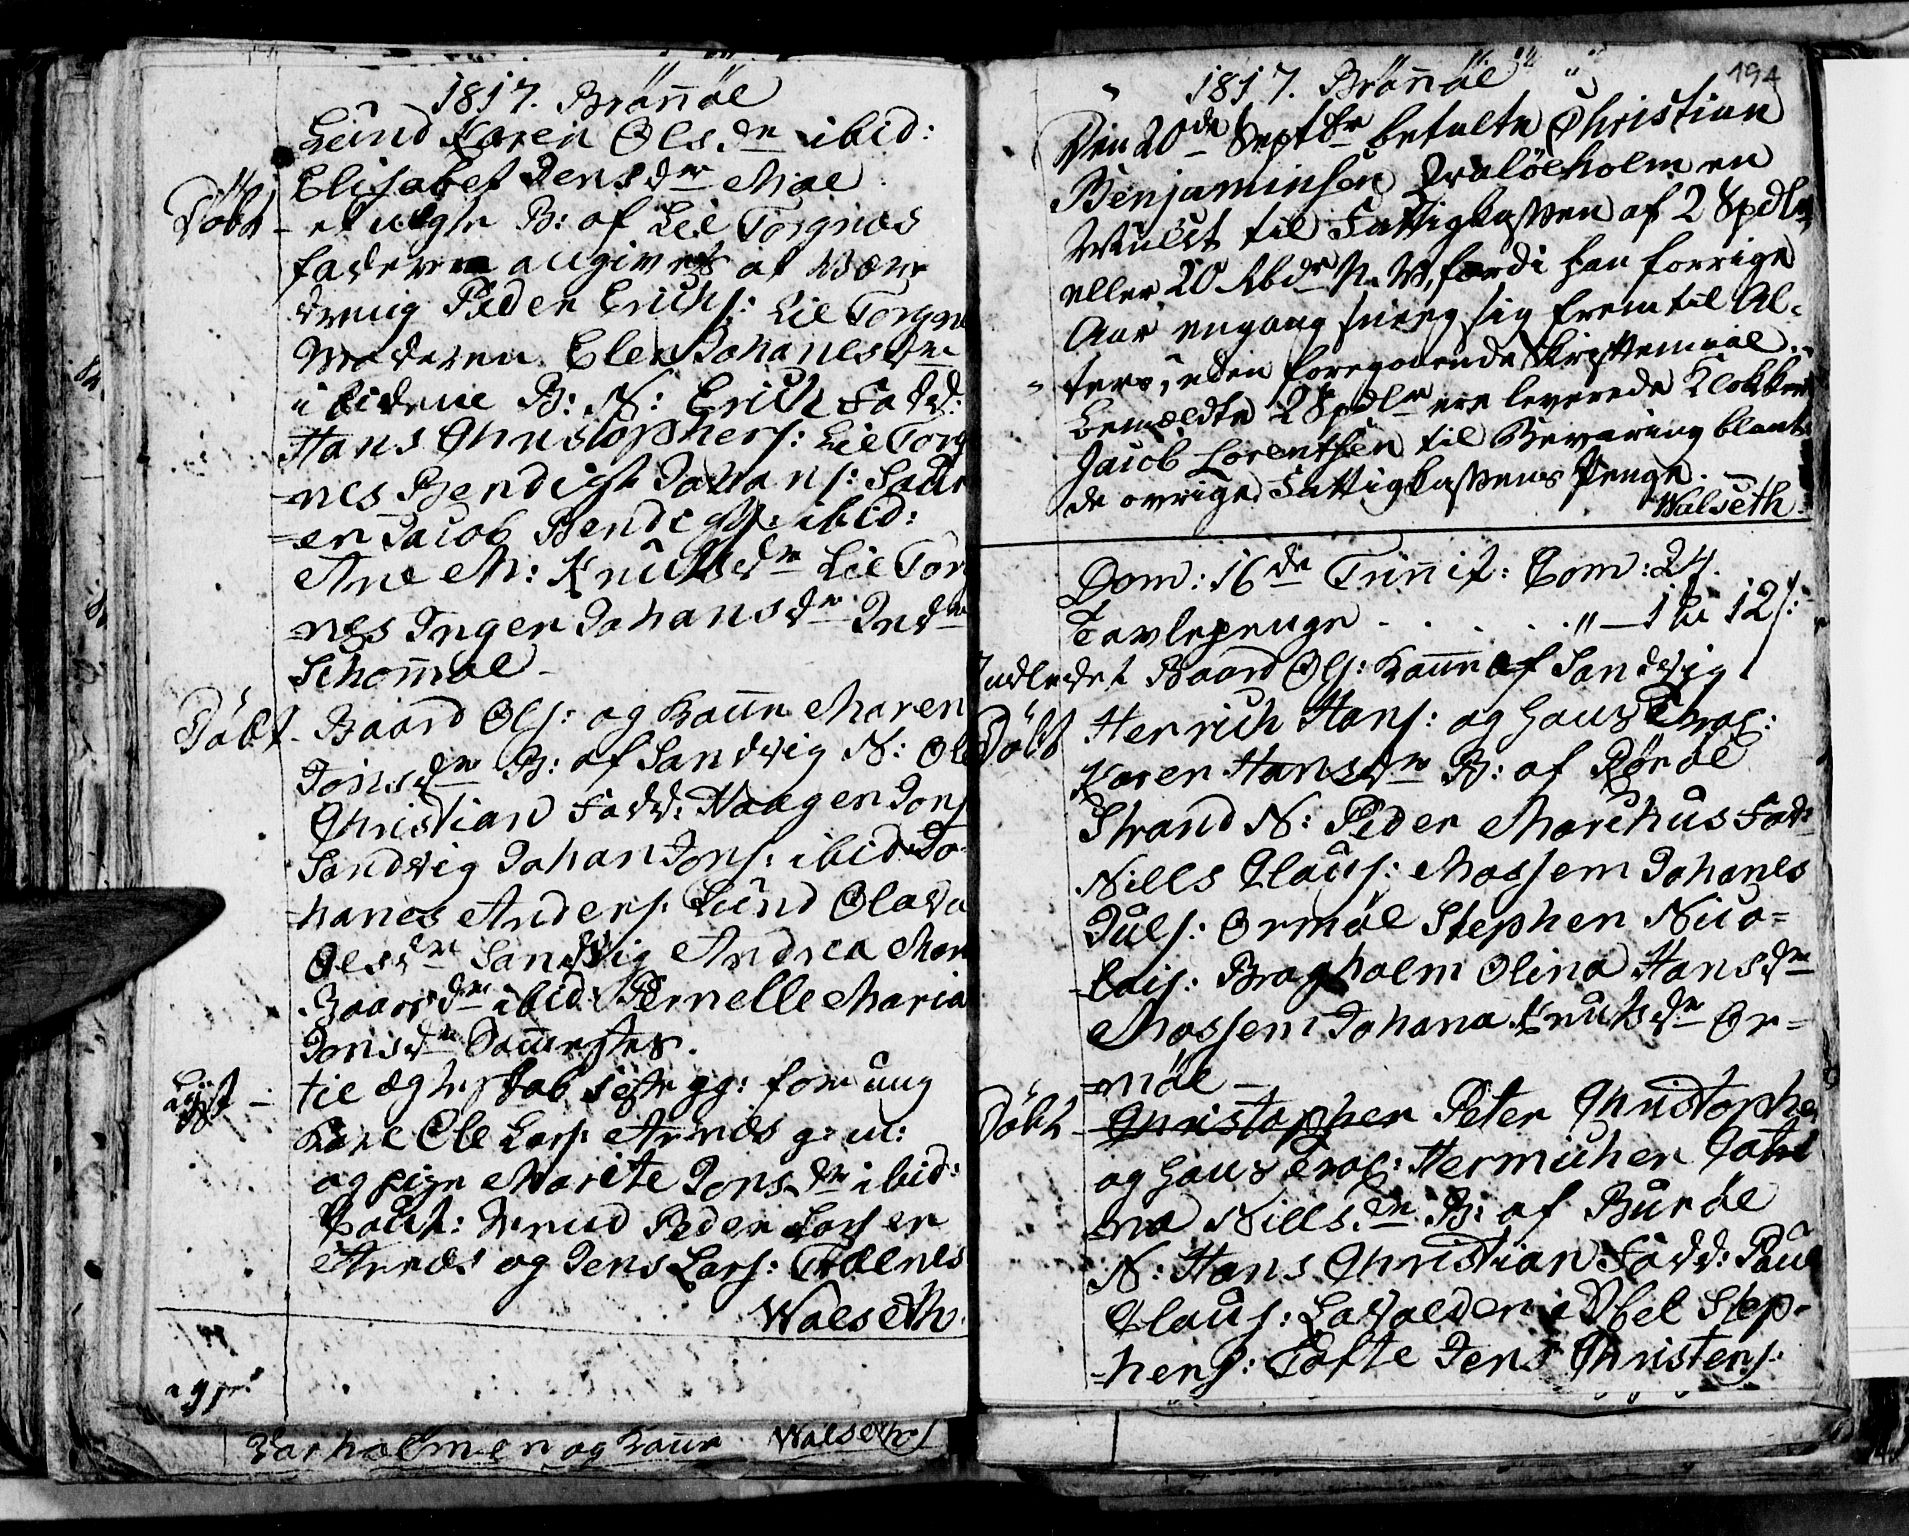 1817. Brönnöe
Lund Karen Olsdr ibid:
Elisabet Jensdr Moe
Döbt - et uægte B: af Lil Torgnæs
faderen angives at være
dreng Peder Erichs: Lil Torgnæ
Moderen Elen Johanesdr
ibidem B: N: Erich Fadd:
Hans Christophers: Lil Torg
=nes Bendigt Johans: Saur
=en Jacob Bendigts: ibid:
Ane M: Knudsdr Lil Torg
=nes Inger Johansdr Indr
Schomoe -
Döbt - Baard Ols: og Kaune Maren
Jonsdr B: af Sandvig N: Ole
Christian Fadd: Haagen Jons
Sandvig Johan Jons: ibid Jo
=hanes Anders: Lund Olava
Olsdr Sandvig Andrea Mar
Baarsdr ibid: Pernelle Maria
Jonsdr
Lyst - til Ægteskab 1ste gg: for ung
Karl Ole Lars: Arnæs g: m:
og pige Marite Jonsdr ibid:
Caut: Peder Larsen
Arnæs og Jens Lars: Trælnes
Walseth
Varholmen og Kaune Walseth
194
1817. Brönnöe
Den 20de Septbr betalte Christian
Benjaminsen Qvaløeholm en
Mulct til Fattigkassen af 2 Spdlr
eller 20 Rbdr N. V. fordi han forrige
Aar engang sneeg sig frem til Al-
ters, uden foregaaende Skriftemaal.
Bemældte 2 Spdlr ere leverede Klokker
Jacob Lorentsen til Bevaring blant
de øvrige Fattigkassens Penge. -
Walseth
Dom: 16de Trinit: Com: 24.
Tavlepenge . . . . . " - 1 12 s:
Indledet Baard Ols: Kaune af Sandvig
Döbt Henrich Hans: og hans Qvae:
Karen Hansdr B: af Rörøe
Strand N: Peder Marchus Fad:
Nills Claus: Mossem Johanes
Juls: Ormöe Stephen Nico=
=lais: Bragholm Olina Hansdr
Mossem Johana Knutsdr Or=
=möe -
Döbt - Christopher Peter Christophe
og hans Qvae: Hermicher Catri
=na Nillsdr B: af Buröe
N: Hans Christian Fadd: Paul
Claus: Abel Step-
=hens: Tofte Jens Christens: